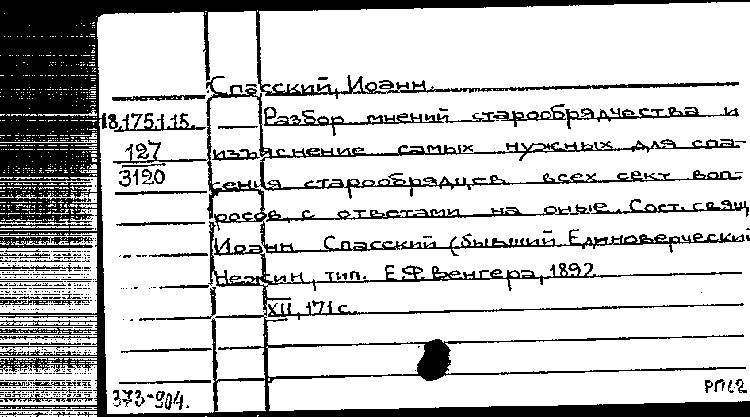 Спасский, Иоанн.
18.175.1.15. Разбор мнений старообрядчества и
127 изъяснение самых нужных для спа-
3120 сения старообрядцев всех сект воп-
росов, с ответами на оные. Сост. свящ.
Иоанн Спасский (бывший Единоверческий
Нежин, тип. Е.Ф. Венгера, 1892
XII, 171 с.
373-904.